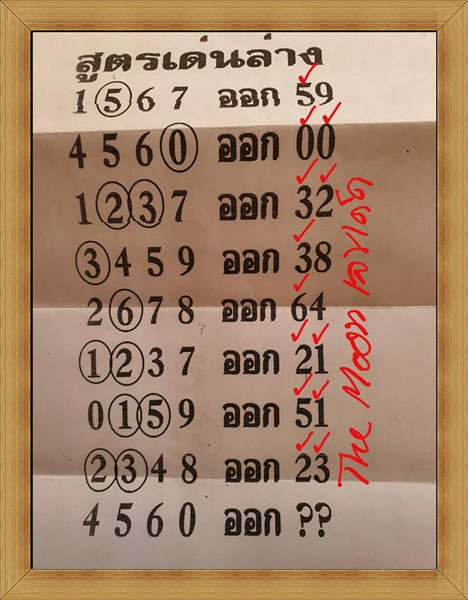 สูตรเด่นล่าง
1 5 6 7 ออก 59
4 5 6 0 ออก 00
1 2 3 7 ออก 32
3 4 5 9 ออก 38
2 6 7 8 ออก 64
1 2 3 7 ออก 21
0 1 5 9 ออก 51
2 3 4 8 ออก 23
4 5 6 0 ออก ??
The Moon